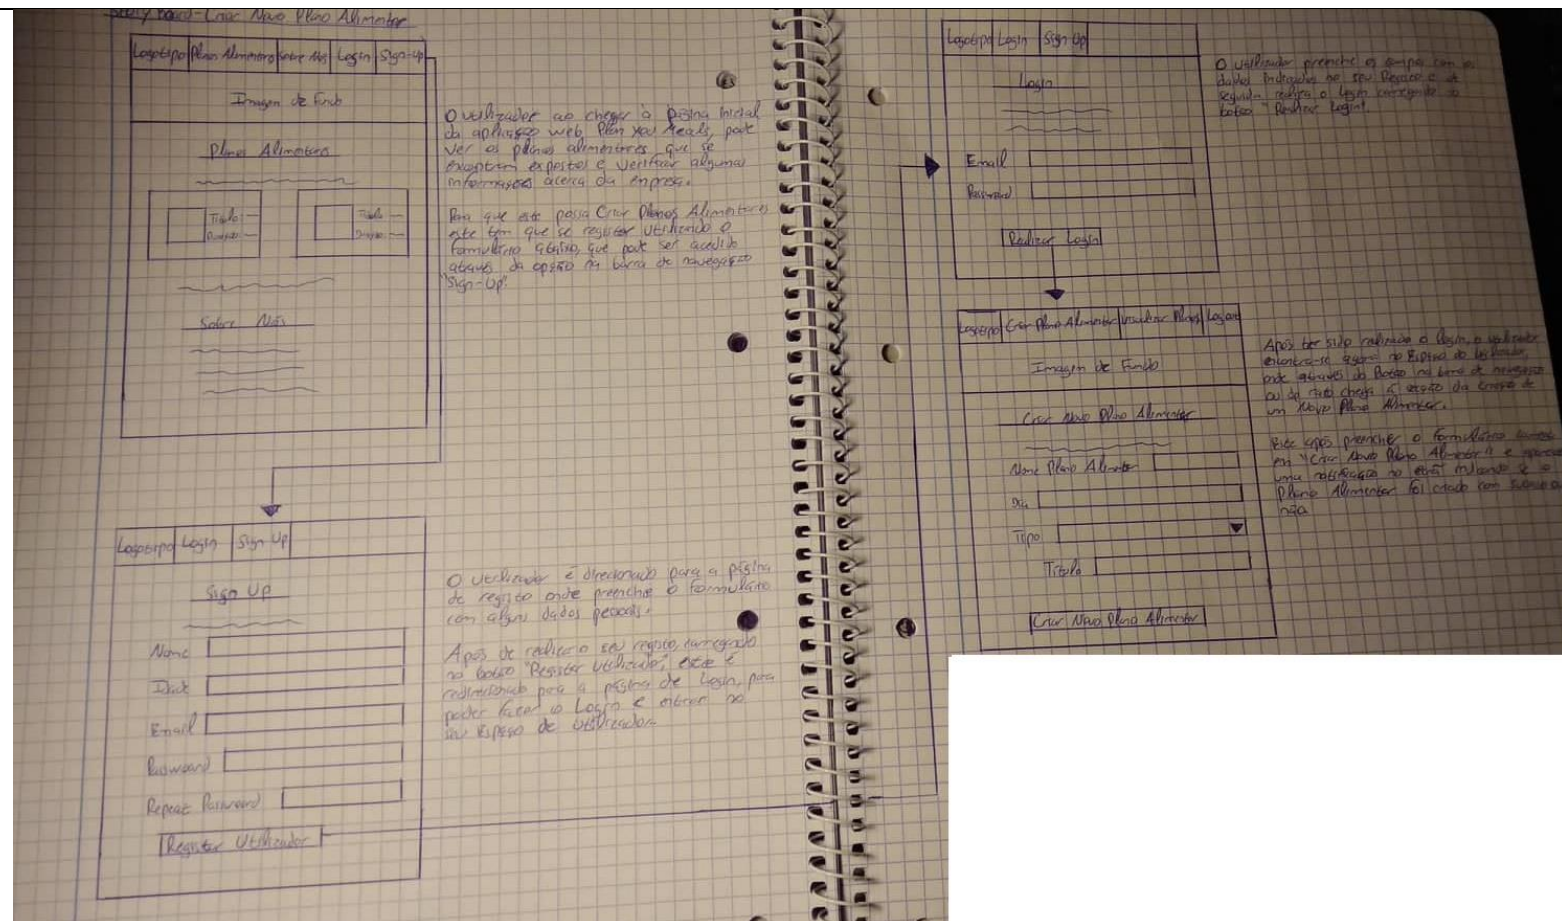 Story board - Criar Novo Plano Alimentar
Logotipo Plano Alimentro Sobre Nós Login Sign-Up
Imagem de Fundo
Planos Alimentares
Titulo
Duração
Titulo
Duração
Sobre Nós
O utilizador ao chegar à página inicial
da aplicação web, Plan You Meals, pode
ver os planos alimentares que se
encontram expostos e verificar algumas
informações acerca da empresa.
Para que este possa Criar Planos Alimentares
este tem que se registar utilizando o
formulário abaixo, que pode ser acedido
através da opção na barra de navegação
"Sign-Up".
Logotipo Login Sign Up
Sign Up
Nome
Idade
Email
Password
Repeat Password
Registar Utilizador
O utilizador é direcionado para a página
de registo onde preenche o formulário
com alguns dados pessoais.
Após de realizar o seu registo, carregando
no botão "Registar Utilizador", este é
redirecionado para a página de Login, para
poder fazer o Login e entrar no
seu Espaço de Utilizador.
Logotipo Login Sign Up
Login
Email
Password
Realizar Login
O utilizador preenche os campos com os
dados indicados no seu Registo e de
seguida realiza o login carregando no
botão "Realizar Login".
Logotipo Criar Plano Alimentar Visualizar Planos Logout
Imagem de Fundo
Criar Novo Plano Alimentar
Nome Plano Alimentar
Dia
Tipo
Titulo
Criar Novo Plano Alimentar
Após ter sido realizado o login, o utilizador
encontra-se agora no Espaço do Utilizador,
onde através do Botão na barra de navegação
ou do rato chega à secção da criação de
um Novo Plano Alimentar.
Este após preencher o formulário carrega
em "Criar Novo Plano Alimentar" e aparece
uma notificação no ecrã indicando se o
Plano Alimentar foi criado com sucesso ou
não